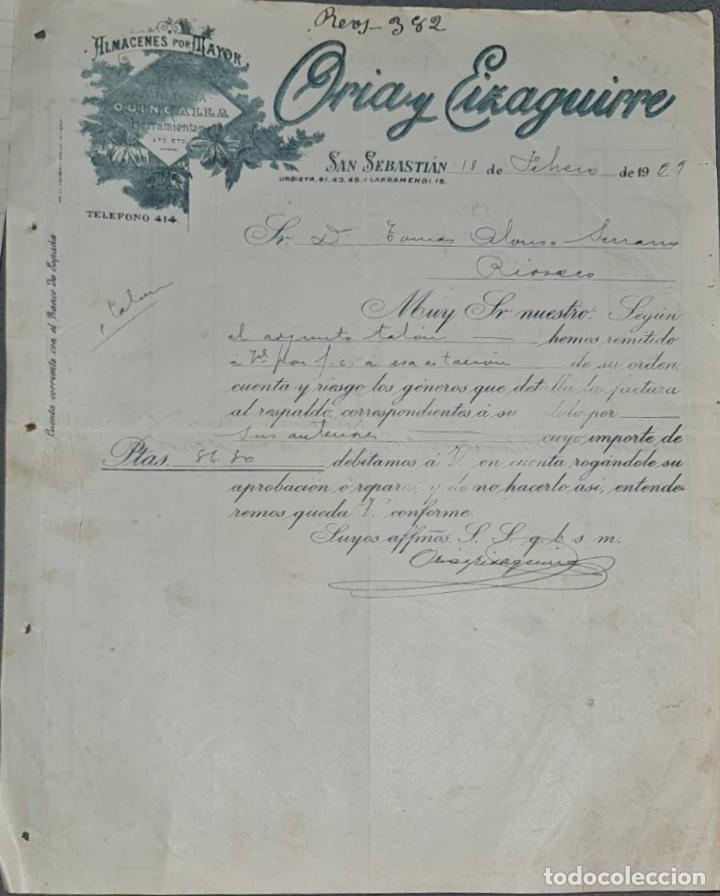 Revs- 382
ALMACENES POR MAYOR
QUINCALLA
Herramientas
ETC. ETC.
Oria y Eizaguirre
SAN SEBASTIÁN 18 de Febrero de 1909
URBIETA, 41, 43, 45. - LARRAMENDI 15.
TELEFONO 414
Cuenta corriente con el Banco de España
Sr. D. Tomas Alonso Serrano
Rioseco
1 talon
Muy Sr. nuestro: Según
el adjunto talón hemos remitido
á V. por f. c. a esa estación de su orden,
cuenta y riesgo los géneros que detalla la factura
al respaldo, correspondientes á su por
cuyo importe de
Ptas. 86.80 debitamos á V. en cuenta rogándole su
aprobación ó reparo, y de no hacerlo así, entende-
remos queda V. conforme.
Suyos affmos. S. S. q. b. s. m.
Oria y Eizaguirre
todocoleccion.net